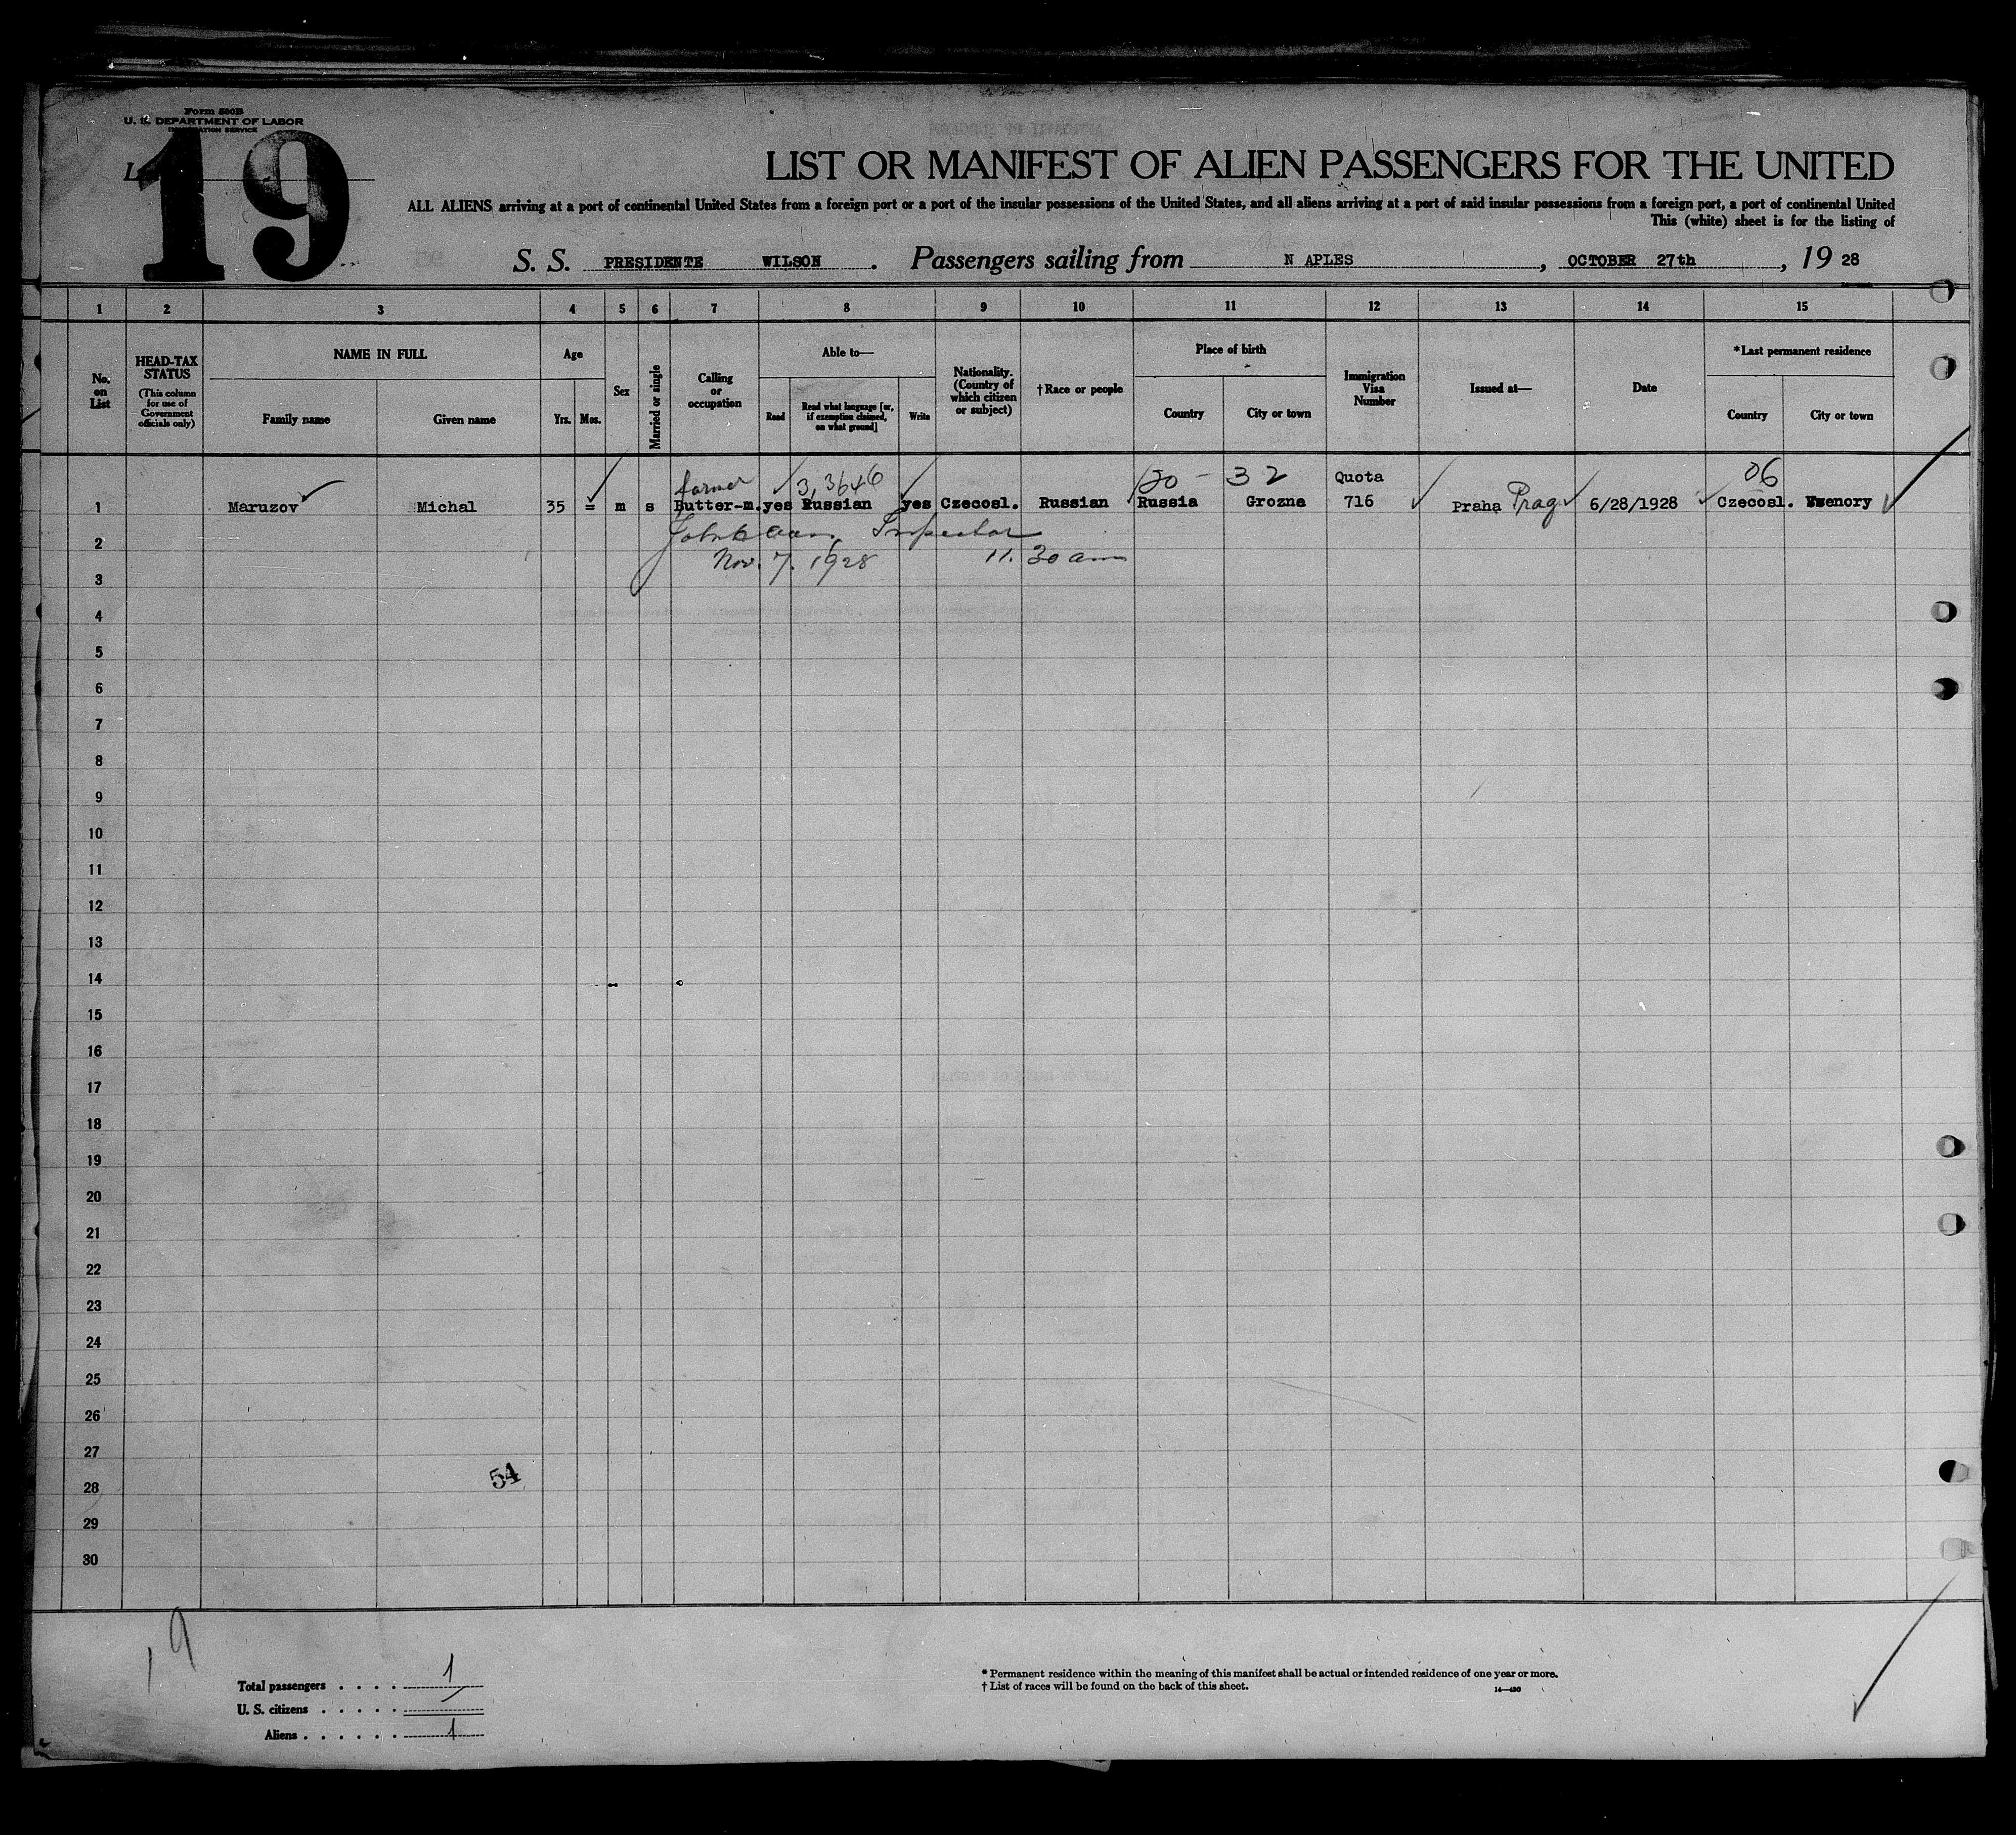 Form 500B
U. S. DEPARTMENT OF LABOR
IMMIGRATION SERVICE
19
LIST OR MANIFEST OF ALIEN PASSENGERS FOR THE UNITED
ALL ALIENS arriving at a port of continental United States from a foreign port or a port of the insular possessions of the United States, and all aliens arriving at a port of said insular possessions from a foreign port, a port of continental United
This (white) sheet is for the listing of
S. S. PRESIDENTE WILSON. Passengers sailing from N APLES, OCTOBER 27th, 19 28
1 2 3 4 5 6 7 8 9 10 11 12 13 14 15
No. on List
HEAD-TAX STATUS
(This column for use of Government officials only)
NAME IN FULL
Family name
Given name
Age
Yrs. Mos.
Sex
Married or single
Calling or occupation
Able to—
Read
Read what language [or, if exemption claimed, on what ground]
Write
Nationality. (Country of which citizen or subject)
† Race or people
Place of birth
Country
City or town
Immigration Visa Number
Issued at—
Date
*Last permanent residence
Country
City or town
farmer 3,3646 20 - 32 Quota 06
1 Maruzov Michal 35 = m s Butter-m. yes Russian yes Czecosl. Russian Russia Grozne 716 Praha Prag 6/28/1928 Czecosl. senory
Inspector
2
Nov. 7. 1928 11.30 am
3
4
5
6
7
8
9
10
11
12
13
14
15
16
17
18
19
20
21
22
23
24
25
26
27
54
28
29
30
19
Total passengers . . . . 1
U. S. citizens . . . . .
Aliens . . . . . . 1
* Permanent residence within the meaning of this manifest shall be actual or intended residence of one year or more.
† List of races will be found on the back of this sheet.
14—430